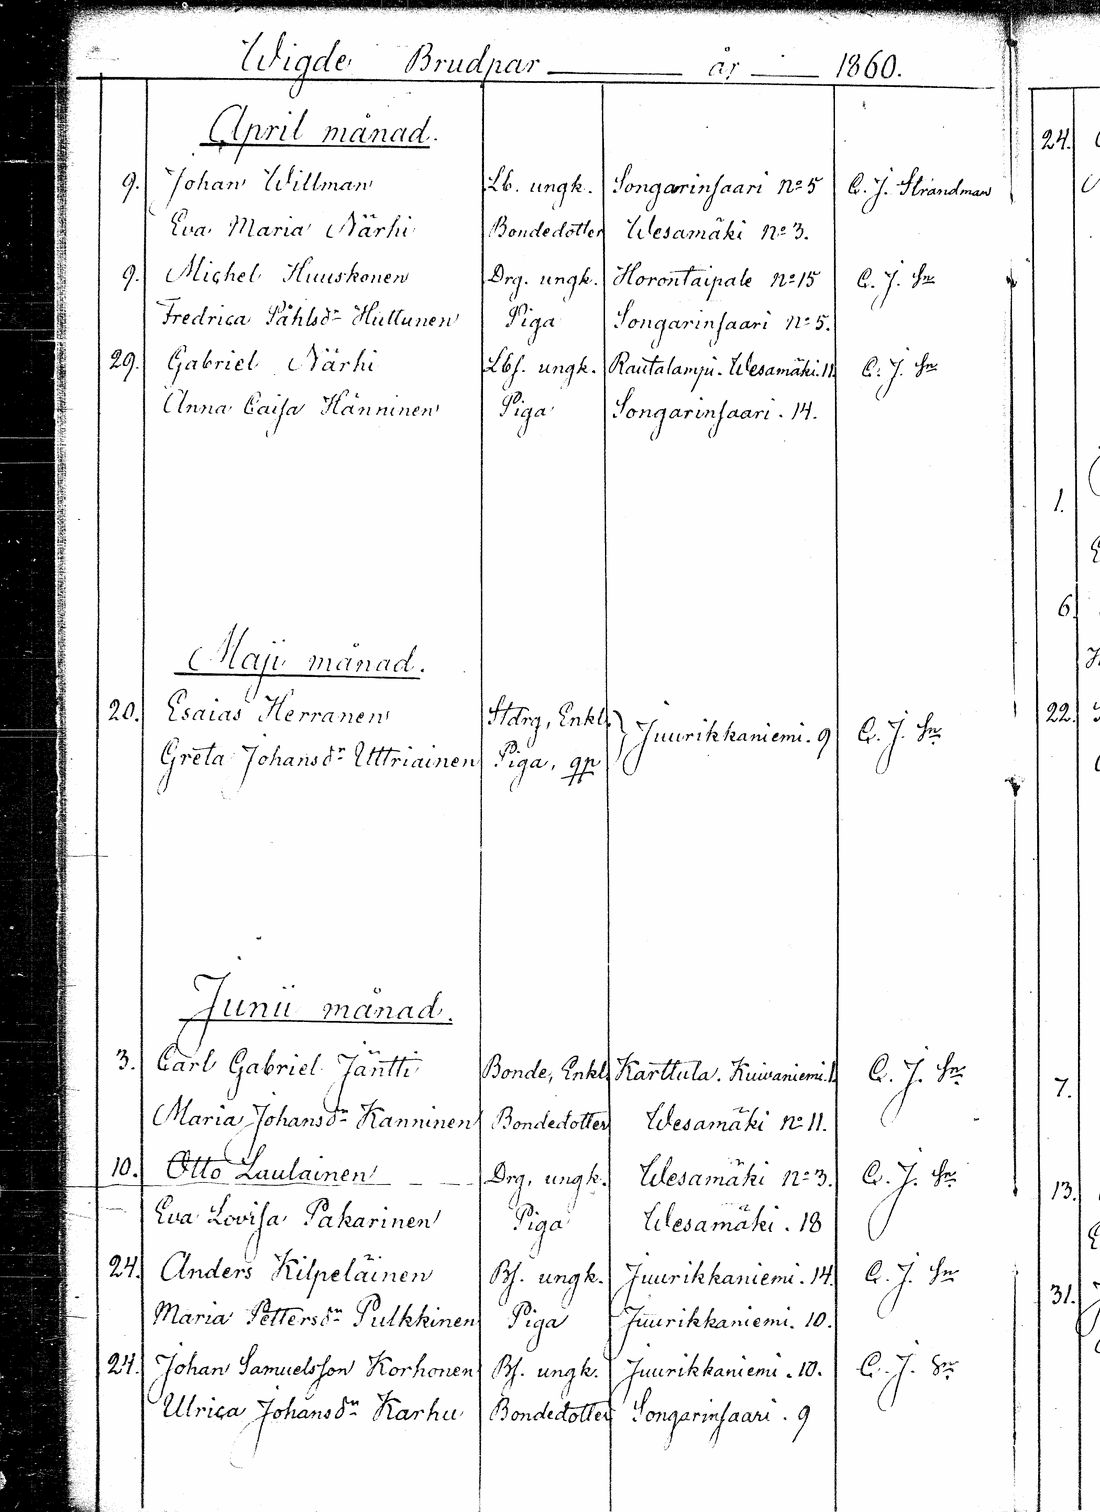 Wigde Brudpar år 1860.
April månad.
9. Johan Willman Lb. ungk. Songarinsaari No 5 C. J. Strandman
Eva Maria Närhi Bondedotter Wesamäki No 3.
9. Michel Huuskonen Drg. ungk. Horontaipale No 15 C. J. Sn
Fredrica Påhlsdr Huttunen Piga Songarinsaari No 5.
29. Gabriel Närhi Lbs. ungk. Rautalampi. Wesamäki. 11 C. J. Sn
Anna Caisa Hänninen Piga Songarinsaari. 14.
Maji månad.
20. Esaias Herranen Stdrg, Enkl. Juurikkaniemi. 9 C. J. Sn
Greta Johansdr Uttriainen Piga, gp
Junii månad.
3. Carl Gabriel Jäntti Bonde, Enkl. Karttula. Kuivaniemi. C. J. Sn
Maria Johansdr Kanninen Bondedotter Wesamäki No 11.
10. Otto Laulainen Drg, ungk. Wesamäki No 3. C. J. Sn
Eva Lovisa Pakarinen Piga Wesamäki. 18
24. Anders Kilpeläinen Bs. ungk. Juurikkaniemi. 14. C. J. Sn
Maria Pettersdr Pulkkinen Piga Juurikkaniemi. 10.
24. Johan Samuelsson Korhonen Bs. ungk. Juurikkaniemi. 10. C. J. Sn
Ulrica Johansdr Karhu Bondedotter Songarinsaari. 9
24.
1.
6.
22.
7.
13.
31.